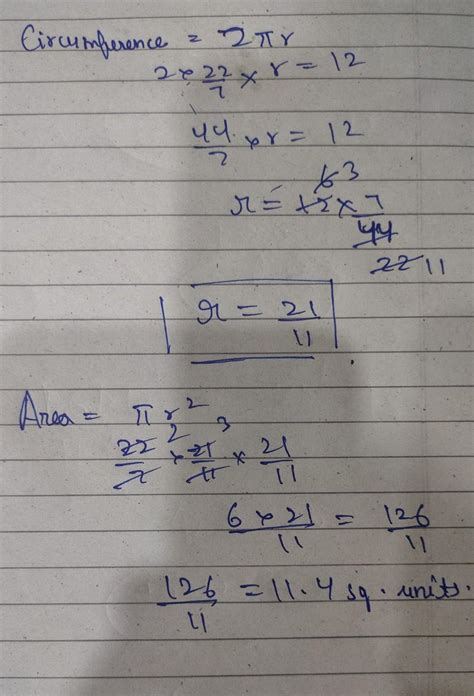 Circumference = 2πr
2 × 22/7 × r = 12
44/7 × r = 12
6 3
r = 12 × 7
44
22 11
r = 21/11
Area = πr²
22/7 2 × 21/11 3 × 21/11
6 × 21/11 = 126/11
126/11 = 11.4 sq. units.